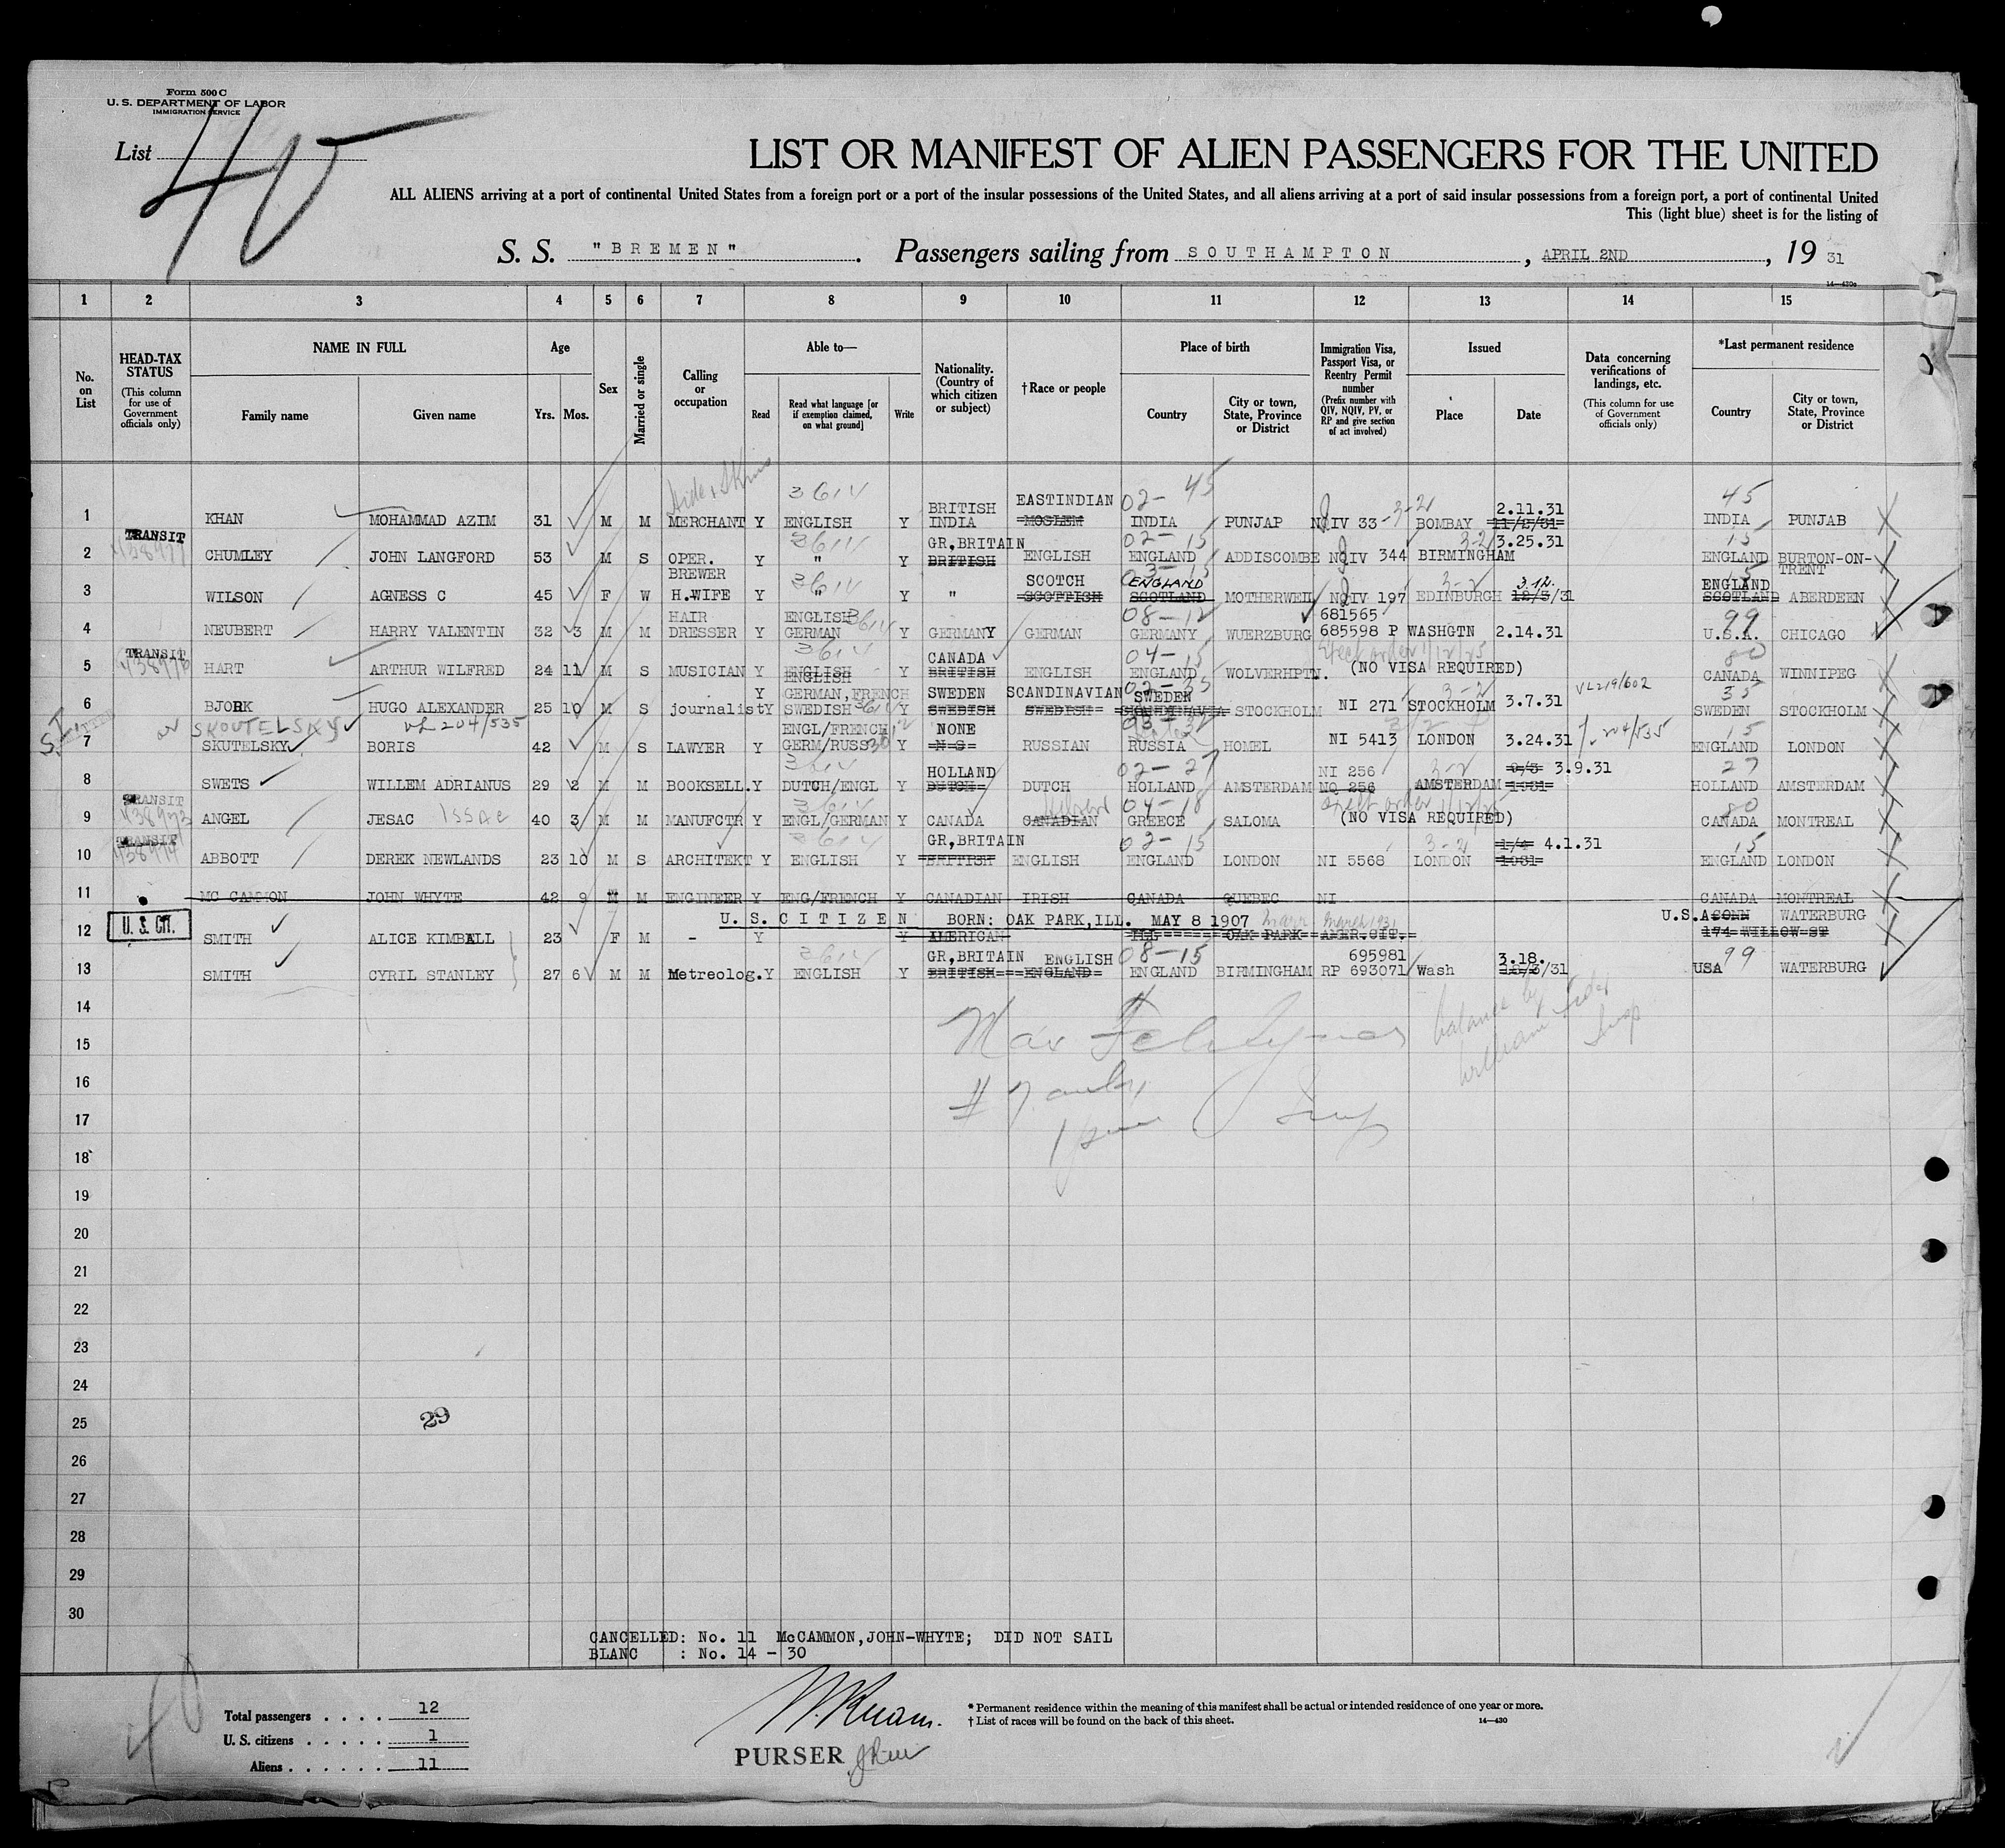 Form 500 C
U. S. DEPARTMENT OF LABOR
IMMIGRATION SERVICE
List 40
LIST OR MANIFEST OF ALIEN PASSENGERS FOR THE UNITED
ALL ALIENS arriving at a port of continental United States from a foreign port or a port of the insular possessions of the United States, and all aliens arriving at a port of said insular possessions from a foreign port, a port of continental United
This (light blue) sheet is for the listing of
S. S. "BREMEN". Passengers sailing from SOUTHAMPTON, APRIL 2ND, 19 31
14—430c
1 2 3 4 5 6 7 8 9 10 11 12 13 14 15
No. on List
HEAD-TAX STATUS (This column for use of Government officials only)
NAME IN FULL
Family name Given name
Age
Yrs. Mos.
Sex
Married or single
Calling or occupation
Able to—
Read Read what language [or if exemption claimed, on what ground] Write
Nationality. (Country of which citizen or subject)
†Race or people
Place of birth
Country City or town, State, Province or District
Immigration Visa, Passport Visa, or Reentry Permit number (Prefix number with QIV, NQIV, PV, or RP and give section of act involved)
Issued
Place Date
Data concerning verifications of landings, etc. (This column for use of Government officials only)
*Last permanent residence
Country City or town, State, Province or District
Hide & Skins 3614 BRITISH EASTINDIAN 02-45 3-21 2.11.31 45
1 KHAN MOHAMMAD AZIM 31 M M MERCHANT Y ENGLISH Y INDIA MOSLEM INDIA PUNJAP NQIV 33 BOMBAY 11/2/31 INDIA PUNJAB
TRANSIT 3614 GR,BRITAIN 02-15 3-21 3.25.31 15
2 CHUMLEY JOHN LANGFORD 53 M S OPER. Y " Y BRITISH ENGLISH ENGLAND ADDISCOMBE NQIV 344 BIRMINGHAM ENGLAND BURTON-ON-TRENT
BREWER 3614 SCOTCH 03-15 ENGLAND 3-2 3.12. 15 ENGLAND
3 WILSON AGNESS C 45 F W H.WIFE Y " Y " SCOTTISH SCOTLAND MOTHERWELL NQIV 197 EDINBURGH 12/3/31 SCOTLAND ABERDEEN
HAIR ENGLISH 3614 08-12 681565 99
4 NEUBERT HARRY VALENTIN 32 3 M M DRESSER Y GERMAN Y GERMANY GERMAN GERMANY WUERZBURG 685598 P WASHGTN 2.14.31 U.S.A. CHICAGO
TRANSIT 3614 CANADA 04-15 80
5 HART ARTHUR WILFRED 24 11 M S MUSICIAN Y ENGLISH Y BRITISH ENGLISH ENGLAND WOLVERHPTN. (NO VISA REQUIRED) CANADA WINNIPEG
ENGLISH
Y GERMAN,FRENCH SWEDEN SCANDINAVIAN 02-35 SWEDEN 3-2 VL219/602 35
6 BJORK HUGO ALEXANDER 25 10 M S journalist Y SWEDISH 3614 Y SWEDISH SWEDISH SKANDINAVIA STOCKHOLM NI 271 STOCKHOLM 3.7.31 SWEDEN STOCKHOLM
S.I. or SKOUTELSKY VL 204/535 ENGL/FRENCH NONE 15
7 SKUTELSKY BORIS 42 M S LAWYER Y GERM/RUSS Y N S RUSSIAN RUSSIA HOMEL NI 5413 LONDON 3.24.31 204/535 ENGLAND LONDON
3614 HOLLAND 02-27 NI 256 3-2 9/3 3.9.31 27
8 SWETS WILLEM ADRIANUS 29 2 M M BOOKSELL. Y DUTCH/ENGL Y DUTCH DUTCH HOLLAND AMSTERDAM NQ 256 AMSTERDAM 1931 HOLLAND AMSTERDAM
TRANSIT 3614 Hebrew 04-18 80
9 ANGEL JESAC Issac 40 3 M M MANUFCTR Y ENGL/GERMAN Y CANADA CANADIAN GREECE SALOMA (NO VISA REQUIRED) CANADA MONTREAL
TRANSIT 3614 GR,BRITAIN 02-15 3-21 1/4 4.1.31 15
10 ABBOTT DEREK NEWLANDS 23 10 M S ARCHITEKT Y ENGLISH Y BRITISH ENGLISH ENGLAND LONDON NI 5568 LONDON 1931 ENGLAND LONDON
11 MC CAMMON JOHN WHYTE 42 9 M M ENGINEER Y ENG/FRENCH Y CANADIAN IRISH CANADA QUEBEC NI CANADA MONTREAL
U. S. CIT. U. S. CITIZEN BORN: OAK PARK,ILL. MAY 8 1907 marr March 1931 U.S.A CONN WATERBURG
12 SMITH ALICE KIMBALL 23 F M - Y Y AMERICAN ILL OAK PARK AMER.CIT. 174 WILLOW ST
3614 GR,BRITAIN ENGLISH 08-15 695981 3.18. 99
13 SMITH CYRIL STANLEY 27 6 M M Metreolog. Y ENGLISH Y BRITISH ENGLAND ENGLAND BIRMINGHAM RP 693071 Wash 18/3/31 USA WATERBURG
14
15
16
17
18
19
20
21
22
23
24
25 29
26
27
28
29
30
CANCELLED: No. 11 McCAMMON,JOHN-WHYTE; DID NOT SAIL
BLANC : No. 14 - 30
40
Total passengers . . . . 12
U. S. citizens . . . . . 1
Aliens . . . . . . 11
PURSER
* Permanent residence within the meaning of this manifest shall be actual or intended residence of one year or more.
† List of races will be found on the back of this sheet.
14—430